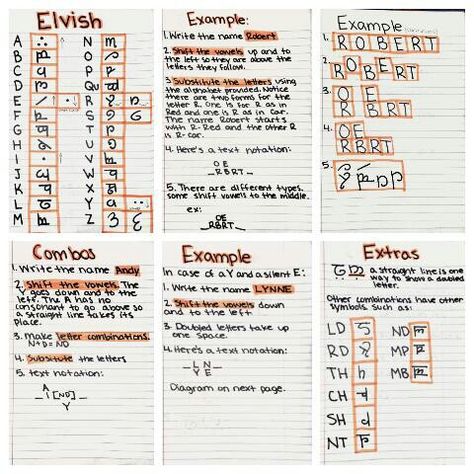 Elvish
A N
B O
C P
D Qu
E R
F S
G T
H U
I V
J W
K X
L Y
M Z
Example:
1. Write the name Robert
2. Shift the vowels up and to
the left so they are above the
letters they follow.
3. Substitute the letters using
the alphabet provided. Notice
there are two forms for the
letter R. One is for R as in
Red and one is R as in Car.
The name Robert starts
with R-Red and the other R
is R-car.
4. Here's a text notation:
O E
_RBRT_
5. There are different types.
some shift vowels to the middle.
ex:
OE
_RBRT_
Example
1. ROBERT
2. ROBERT
3. O E
R BRT
4. OE
RBRT
5.
Combos
1. Write the name Andy
2. Shift the vowels. The
Y goes down and to the
left. The A has no
consonant to go above so
a straight line takes its
place.
3. Make letter combinations.
N+D=ND
4. Substitute the letters
5. text notation:
A
_ı[ND]_
Y
Example
In case of a Y and a silent E:
1. Write the name LYNNE
2. Shift the vowels down
and to the left
3. Doubled letters take up
one space.
4. Here's a text notation:
_L N_
Y E
Diagram on next page.
Extras
a straight line is one
way to show a doubled
letter.
Other combinations have other
symbols. Such as:
LD ND
RD MP
TH MB
CH
SH
NT